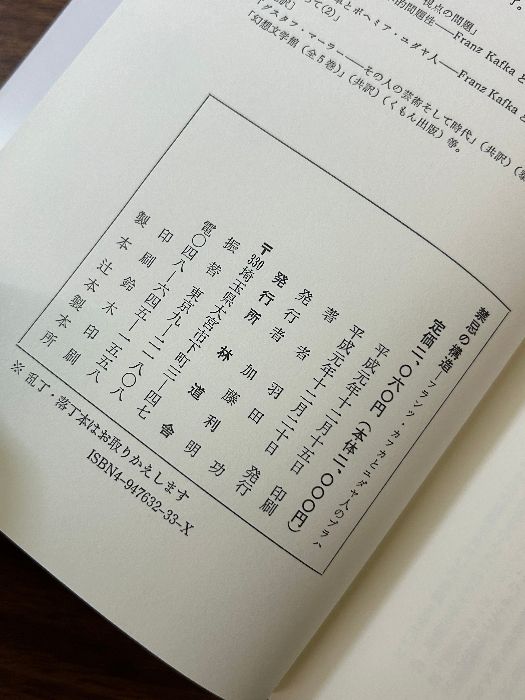 視点の問題」
的問題性——Franz Kafka と
とボーミア・ユダヤ人——Franz Kafka と
って(2)」
「グスタフ・マーラー——その人の芸術そして時代」(共訳)
「幻想文学館(全5巻)」(共訳)(くもん出版)等。
禁忌の構造—フランツ・カフカとユダヤ人のプラハ
定価二、〇六〇円(本体二、〇〇〇円)
平成元年十二月十五日 印刷
平成元年十二月二十日 発行
著者 羽田 功
発行者 加藤利明
発行所 林道舎
〒330 埼玉県大宮市下町二—四七
振替 東京九—二二八〇八
電〇四八—六四五—一五五八
印刷 鈴木印刷
製本 辻製本所
※ 乱丁・落丁本はお取りかえします
ISBN4-947632-33-X